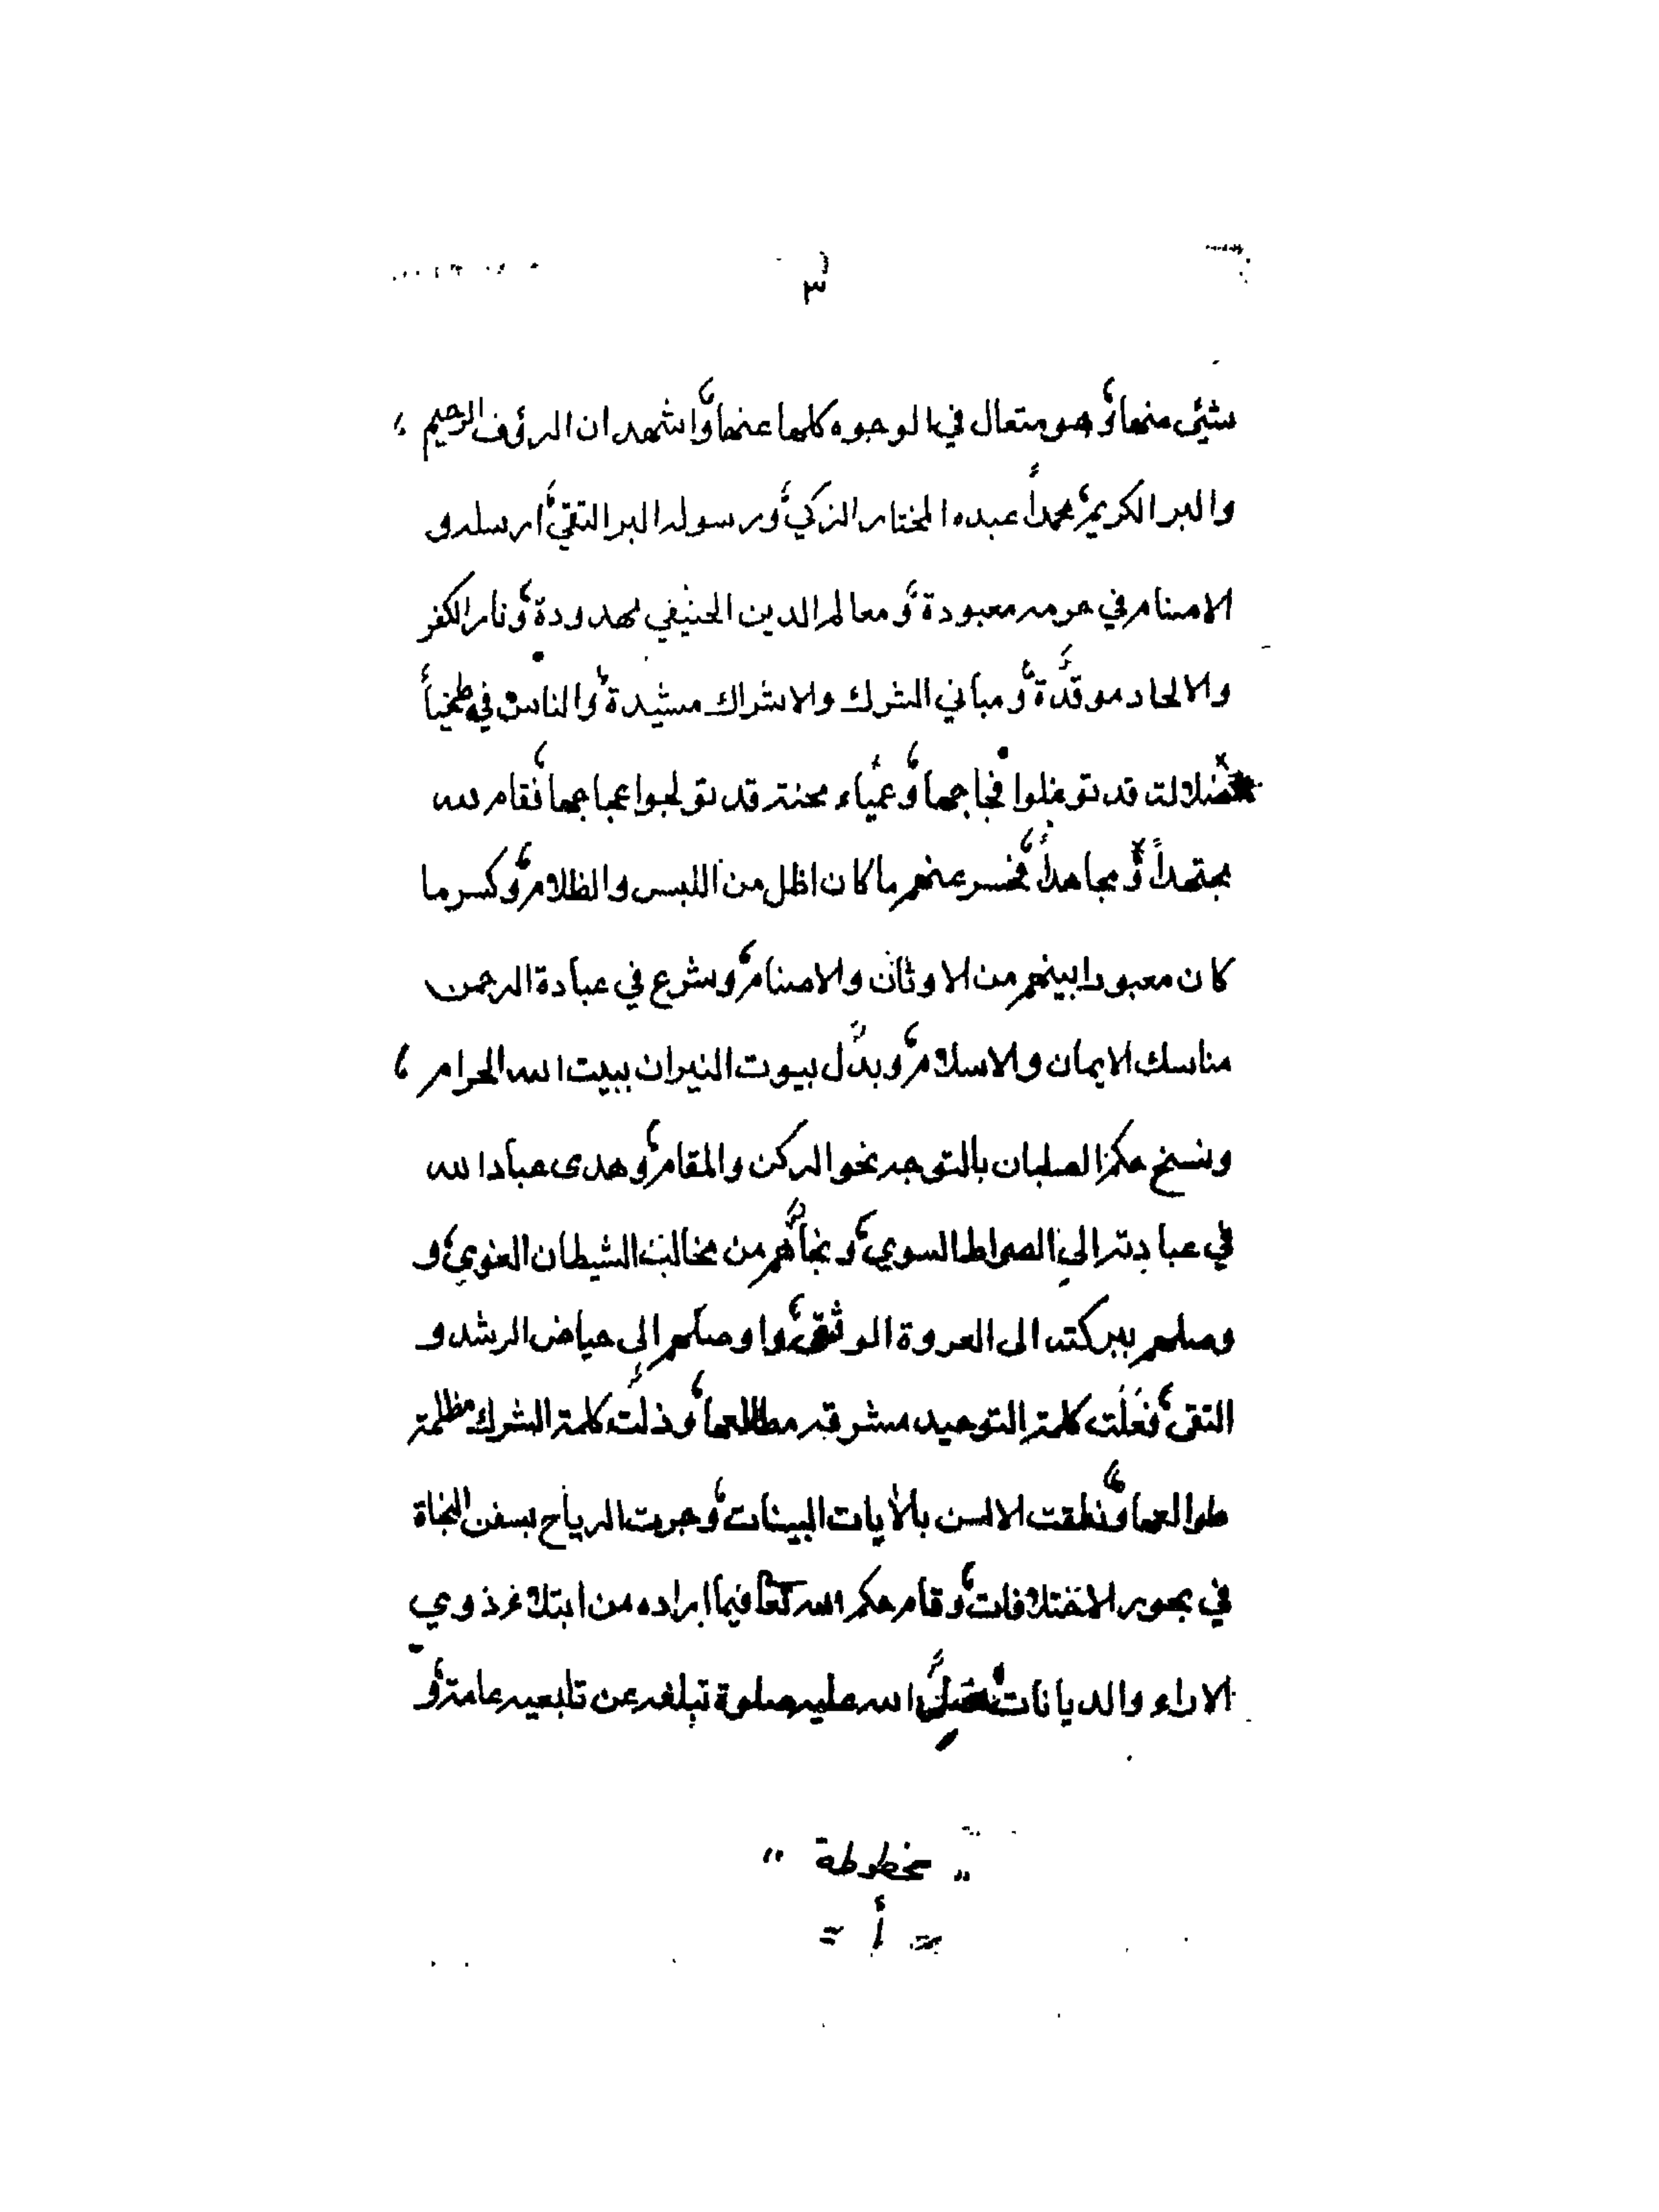 ٣
شيئ منها، وهو متعال في الوجوه كلها عنها، واشهد ان الرؤف الرحيم،
والبر الكريم، محمداً عبده المختار الزكي، ورسوله البر التقي، ارسله و
الاصنام في حرمه معبودة، ومعالم الدين الحنيفي مهدودة، ونار الكفر
والالحاد موقدة، ومباني الشرك والاشراك مشيدة، والناس في طخياً
ضلالة قد توغلوا فجاجها، وعمياء محنة قد تولجوا عجاجها، فقام لله
مجتهداً، ومجاهداً، فحسر عنهم ما كان اظل من اللبس والظلام، وكسر ما
كان معبودا بينهم من الاوثان والاصنام، وشرع في عبادة الرحمن
مناسك الايمان والاسلام، وبدّل بيوت النيران ببيت الله الحرام،
ونسخ حكم الصلبان بالتوجه نحو الركن والمقام، وهدى عباد الله
في عبادته الى الصراط السوي، ونجاهم من مخالب الشيطان الغوي، و
وصلهم ببركته الى العروة الوثقى، واوصلهم الى حياض الرشد و
التقى، فعلت كلمة التوحيد مشرقه مطالعها، وذلت كلمة الشرك مظلمة
طوالعها، ونطقت الالسن بالآيات البينات، وجرت الرياح بسفن النجاة
في بحور الاختلافات، وقام حكم الله تعا فيما اراده من ابتلاء ذوي
الاراء والديانات، فصلّ الله عليه صلوة تبلغه عن تابعيه عامة، و
" مخطوطة "
= أ =